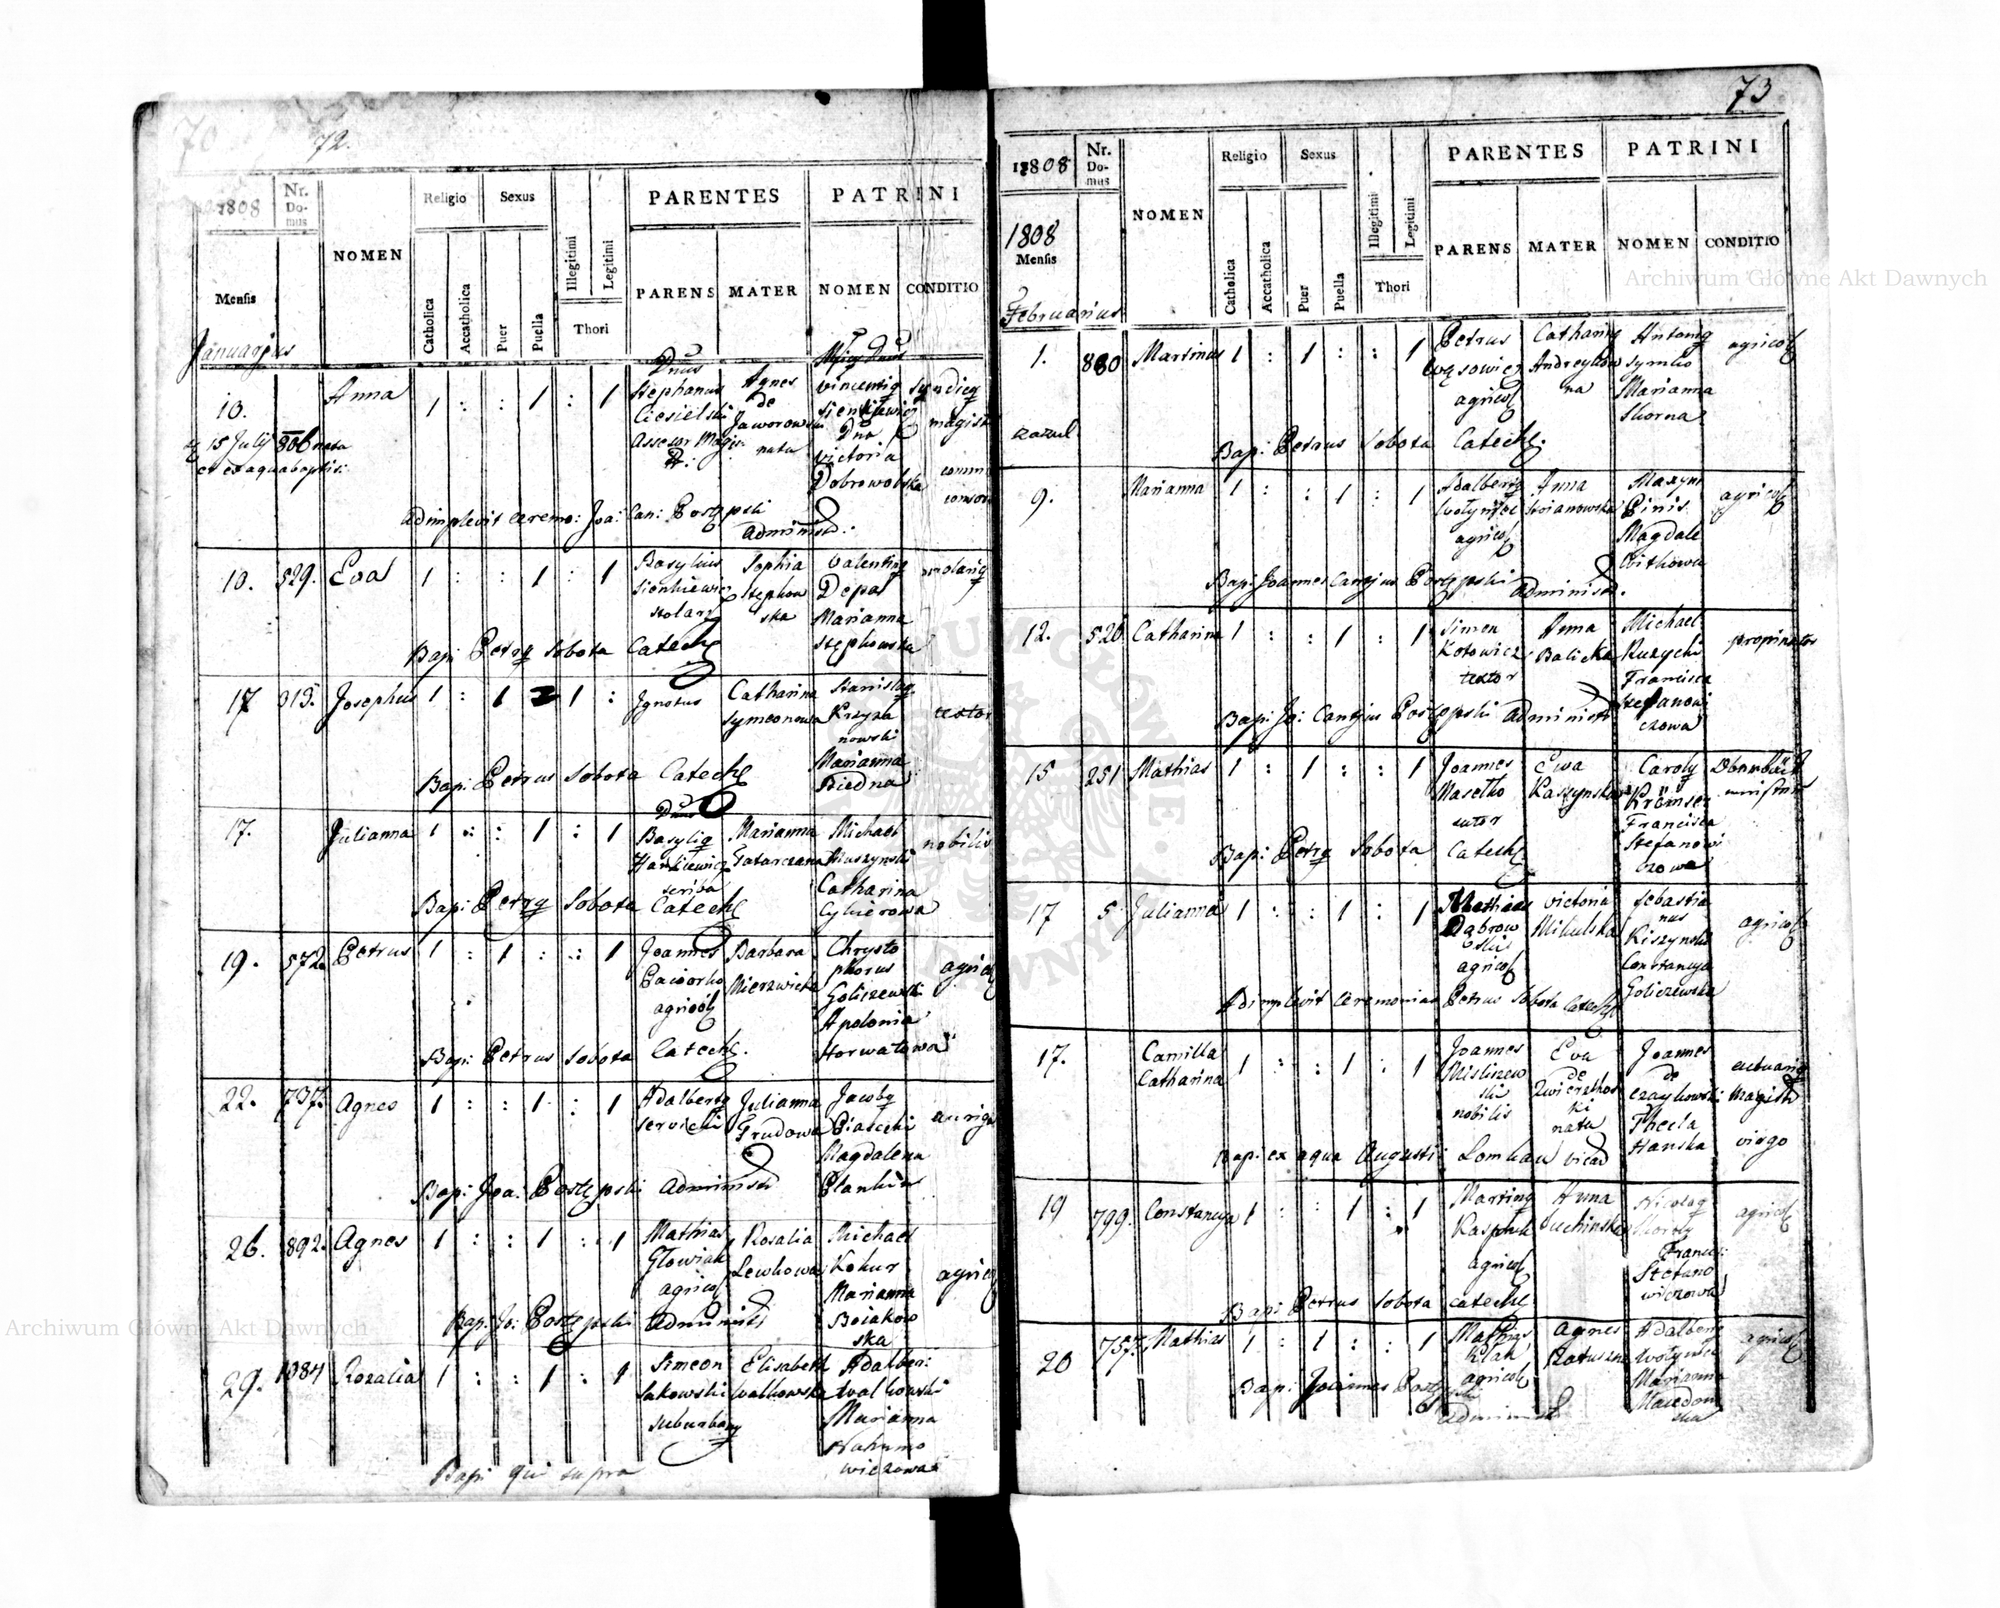 70
72.
1808
Nr. Domus
NOMEN
Religio
Sexus
PARENTES
PATRINI
Mensis
Catholica
Accatholica
Puer
Puella
Illegitimi
Legitimi
Thori
PARENS
MATER
NOMEN
CONDITIO
Januarius
10.
15 Julij 806 nata
et ex aqua baptis:
Anna
1 : : 1 : 1
Dnus
Stephanus
Ciesielski
Assesor Magis:
Agnes
de
Jaworowski
nata
Vincentiq
Sienkiewicz
Dna
Victoria
Dobrowolska
syndicq
magist
consor
adimplevit ceremo: Joa: Can: Postępski
administr:
10. 529. Eva 1 : : 1 : 1
Basylius
Sienkiewicz
stolarz
Sophia
Stephow
ska
Valentinq
Depa
Marianna
Stępkowska
molariq
Bap: Petrq Sobota Catech
17 315. Josephus 1 : 1 1 :
Ignotus
Catharina
Symeonowa
Stanislaq
Krzyza
nowski
Marianna
Biedna
textor
Bap: Petrus Sobota Catech
17. Julianna 1 : : 1 : 1
Dnus
Basyliq
Harkiewicz
scriba
Marianna
Tatarczana
Michael
Muszynski
Catharina
Cybierowa
nobilis
Bap: Petrq Sobota Catech
19. 572. Petrus 1 : 1 : : 1
Joannes
Pawiorko
agricol
Barbara
Mierzwicka
Chrysto
phorus
Goliszewski
Apolonia
Horwatowa
agricol
Bap: Petrus Sobota Catech.
22. 737. Agnes 1 : : 1 : 1
Adalbertq
Servicki
Julianna
Trudowa
Jacobq
Piasecki
Magdalena
auriga
Bap: Joa: Postępski Administr
26. 892. Agnes 1 : : 1 : 1
Mathias
Głowiak
agricol
Rosalia
Lewkowa
Michael
Kokur
Marianna
Boiakow
ska
agricol
Bap: Jo: Postępski Administr
29. 1084 Rozalia 1 : : 1 : 1
Simeon
Sakowski
suburbanq
Elisabeth
Walkowska
Adalber:
Walkowski
Marianna
Nahumo
wiczowa
Bap: qui supra
73
1808
Nr. Domus
NOMEN
Religio
Sexus
PARENTES
PATRINI
1808
Mensis
Catholica
Accatholica
Puer
Puella
Illegitimi
Legitimi
Thori
PARENS
MATER
NOMEN
CONDITIO
Februarius
1. 880 Martinus 1 : 1 : : 1
Petrus
Wąsowicz
agricol
Catharina
Andreykow
na
Antoniq
Symko
Marianna
Skorna
agricol
Bap: Petrus Sobota Catech.
9. Marianna 1 : : 1 : 1
Adalbertq
Wołyniec
agricol
Anna
Maxym
Pinis
Magdale
Witkowa
agricol
Bap: Joannes Cantjus Postępski Administr.
12. 526 Catharina 1 : : 1 : 1
Simen
Kotowicz
textor
Anna
Balicka
Michael
Ruzycki
Francisca
Stefanowi
czowa
propinator
Bap: Jo: Cantjus Postępski Administr
15 251 Mathias 1 : 1 : : 1
Joannes
Masełko
sutor
Eva
Kaszynska
Carolq
Krämser
Francisca
Stefanowi
czowa
Bap: Petrq Sobota Catech
17 5 Julianna 1 : : 1 : 1
Mathias
Dąbrow
ski
agricol
Victoria
Mikulska
Sebastia
nus
Kiszynski
Constancya
Goliczewska
agricol
Adimplevit ceremonias Petrus Sobota Catech
17. Camilla
Catharina
1 : : 1 : 1
Joannes
Misliszew
ski
nobilis
Eva
de
Zwierzkos
ki
nata
Joannes
de
Czaykowski
Thecla
Hanska
actuariq
Magistr
virgo
Bap: ex aqua Augusti: Lomkau vicar
19 799. Constancya 1 : : 1 : 1
Martinq
Kasprık
agricol
Anna
Suchinska
Nicolaq
Francis:
Stefano
wiczowa
agricol
Bap: Petrus Sobota Catech
20 757. Mathias 1 : 1 : : 1
Mathias
Klak
agricol
Agnes
Adalbertq
Wołyniec
Marianna
Macedon
ska
agricol
Bap: Joannes Postępski
Administr
Archiwum Główne Akt Dawnych
Archiwum Główne Akt Dawnych
ARCHIWUM GŁÓWNE AKT DAWNYCH